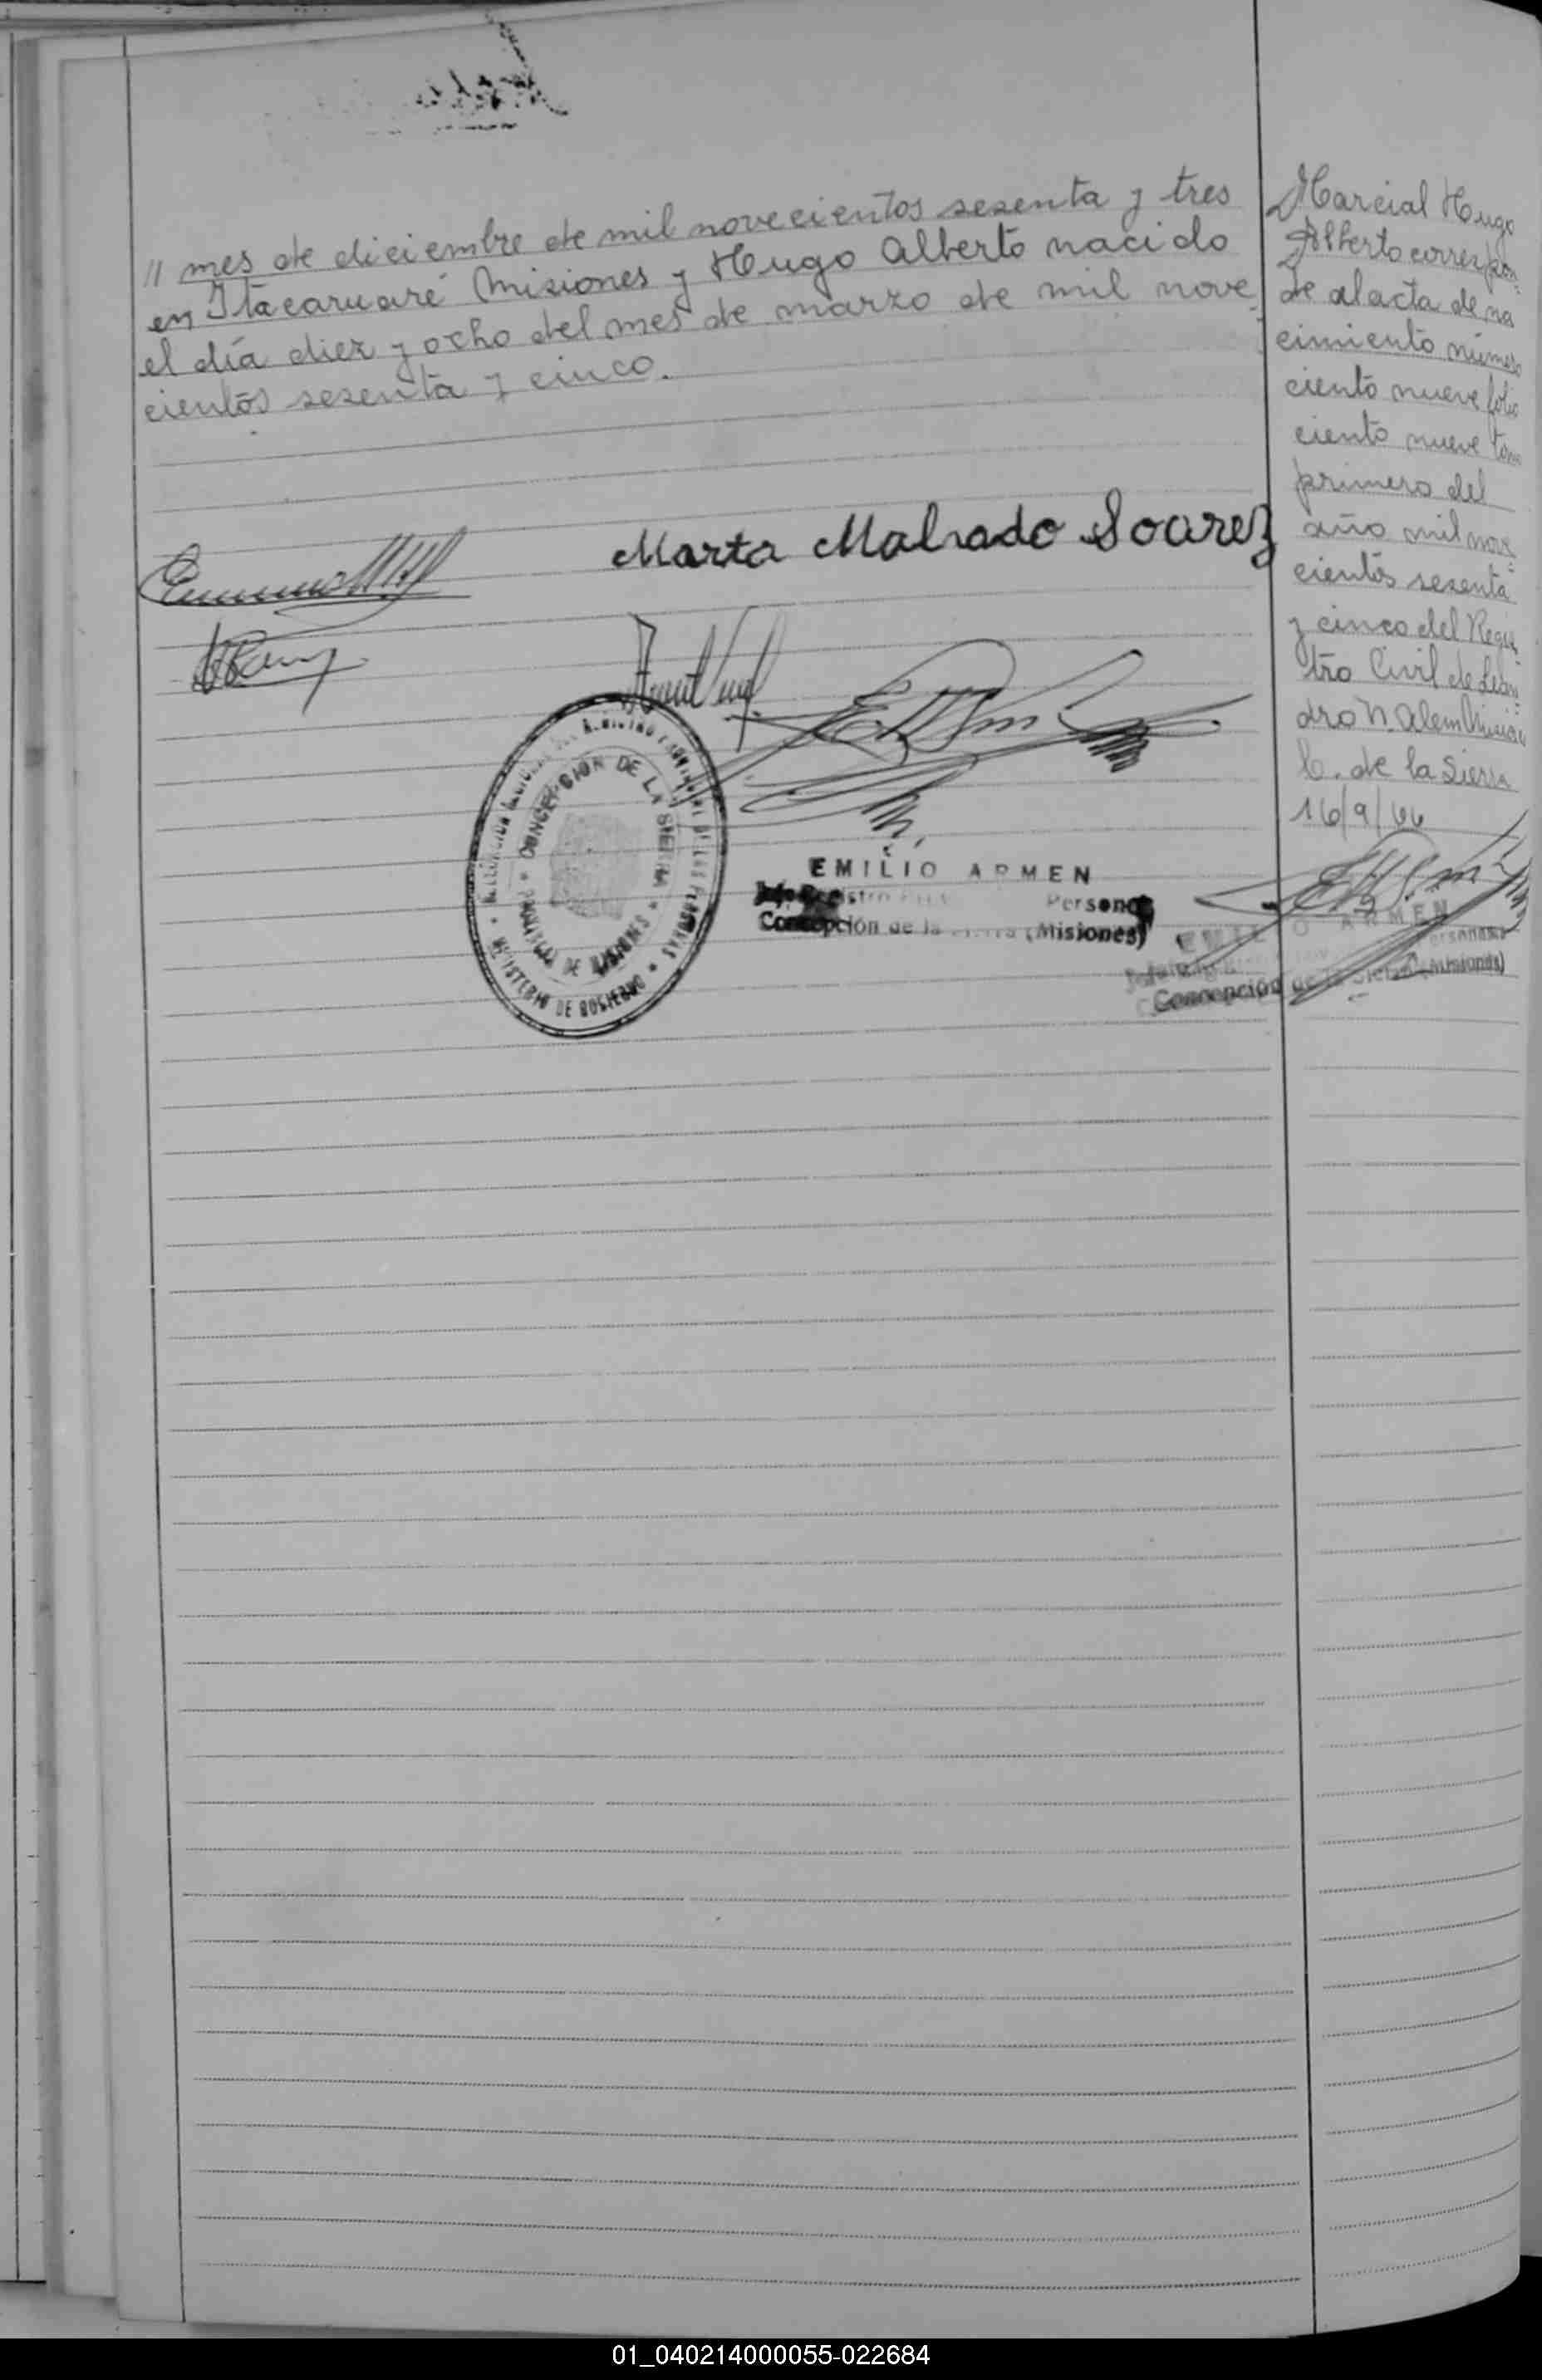 // mes de diciembre de mil novecientos sesenta y tres
en Itacaruaré Misiones y Hugo Alberto nacido
el día diez y ocho del mes de marzo de mil nove
cientos sesenta y cinco.
Marta Malvado Soarez
CONCEPCION DE LA SIERRA
DE MISIONES
MINISTERIO DE GOBIERNO
EMILIO ARMEN
Jefe Registro Personas
Concepción de la (Misiones)
Marcial Hugo
Alberto correspon
de al acta de na
cimiento número
ciento nueve folio
ciento nueve tomo
primero del
año mil nove
cientos sesenta
y cinco del Regis
tro Civil de Lean
dro N. Alem Misiones
C. de la Sierra
16/9/66
EMILIO ARMEN
Personas
Concepción de la Sierra (Misiones)
01_040214000055-022684